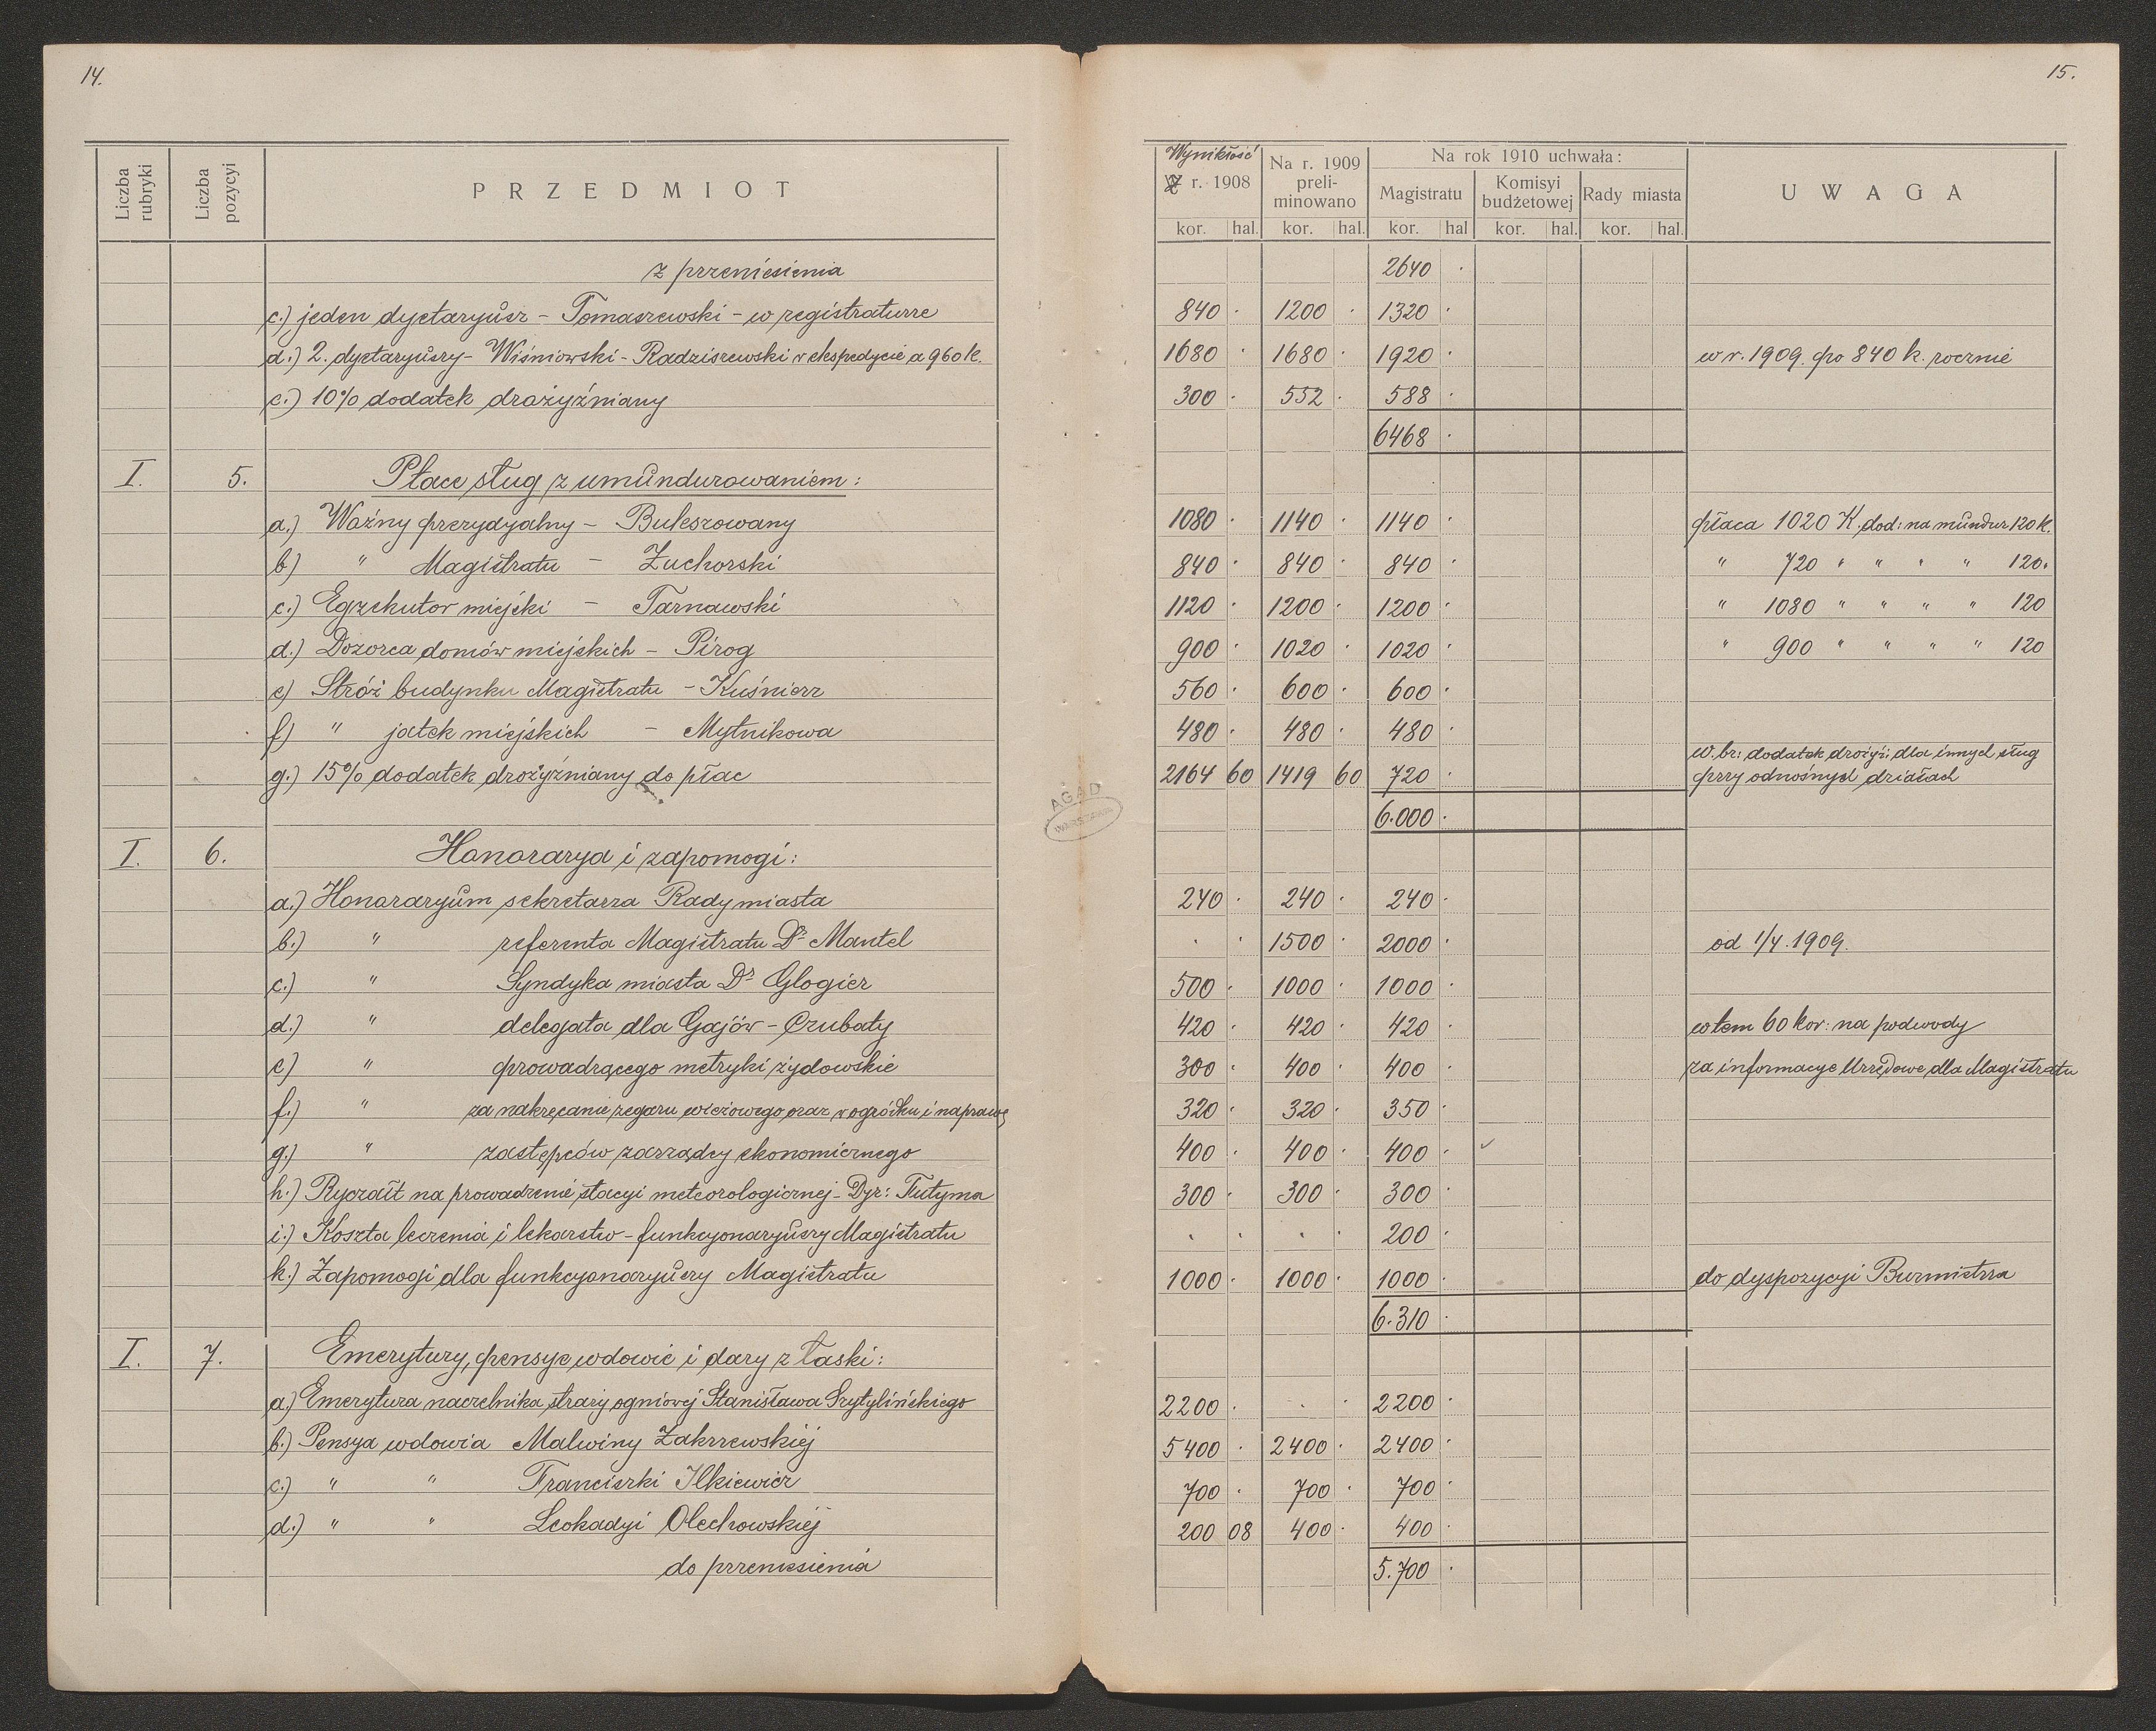 14.
15.
Liczba rubryki
Liczba pozycyi
PRZEDMIOT
Wynikłość
Z r. 1908
Na r. 1909 preliminowano
Na rok 1910 uchwała:
Magistratu
Komisyi budżetowej
Rady miasta
UWAGA
kor. hal. kor. hal. kor. hal kor. hal. kor. hal.
z przeniesienia 2640 ·
c.) jeden dyetaryusz – Tomaszewski – w registraturze 840 · 1200 · 1320 ·
d.) 2. dyetaryuszy – Wiśniowski – Radziszewski w ekspedycie a 960 k. 1680 · 1680 · 1920 · w r. 1909. po 840 k. rocznie
e.) 10% dodatek drożyźniany 300 · 552 · 588 ·
6468 ·
I. 5. Płace sług z umundurowaniem:
a.) Woźny prezydyalny – Buleszowany 1080 · 1140 · 1140 · płaca 1020 K. dod: na mundur 120 k.
b) " Magistratu – Zuchorski 840 · 840 · 840 · " 720 " " " " 120.
c.) Egzekutor miejski – Tarnawski 1120 · 1200 · 1200 · " 1080 " " " " 120
d.) Dozorca domów miejskich – Pirog 900 · 1020 · 1020 · " 900 " " " " 120
e) Stróż budynku Magistratu – Kuśnierz 560 · 600 · 600 ·
f) " jatek miejskich – Mytnikowa 480 · 480 · 480 ·
g.) 15% dodatek drożyźniany do płac 2164 60 1419 60 720 · w. br: dodatek drożyź: dla innych sług
przy odnośnych działach
6.000 ·
AGAD
WARSZAWA
I. 6. Honorarya i zapomogi:
a.) Honoraryum sekretarza Rady miasta 240 · 240 · 240 ·
b.) " referenta Magistratu Dr Mantel · · 1500 · 2000 · od 1/4. 1909.
c.) " Syndyka miasta Dr Glogier 500 · 1000 · 1000 ·
d.) " delegata dla Gajów – Czubaty 420 · 420 · 420 · w tem 60 kor: na podwody
e) " prowadzącego metryki żydowskie 300 · 400 · 400 · za informacye Urzędowe dla Magistratu
f.) " za nakręcanie zegaru wieżowego oraz w ogródku i naprawę 320 · 320 · 350 ·
g.) " zastępców zarządcy ekonomicznego 400 · 400 · 400 ·
h.) Ryczałt na prowadzenie stacyi meteorologicznej – Dyr: Tutyma 300 · 300 · 300 ·
i.) Koszta leczenia i lekarstw – funkcyonaryuszy Magistratu · · · · 200 ·
k.) Zapomogi dla funkcyonaryuszy Magistratu 1000 · 1000 · 1000 · do dyspozycyi Burmistrza
6.310 ·
I. 7. Emerytury, pensye wdowie i dary z łaski:
a.) Emerytura naczelnika straży ogniowej Stanisława Szytylińskiego 2200 · · · 2200 ·
b.) Pensya wdowia Malwiny Zakrzewskiej 5400 · 2400 · 2400 ·
c.) " " Franciszki Ilkiewicz 700 · 700 · 700 ·
d.) " " Leokadyi Olechowskiej 200 08 400 · 400 ·
do przeniesienia 5.700 ·